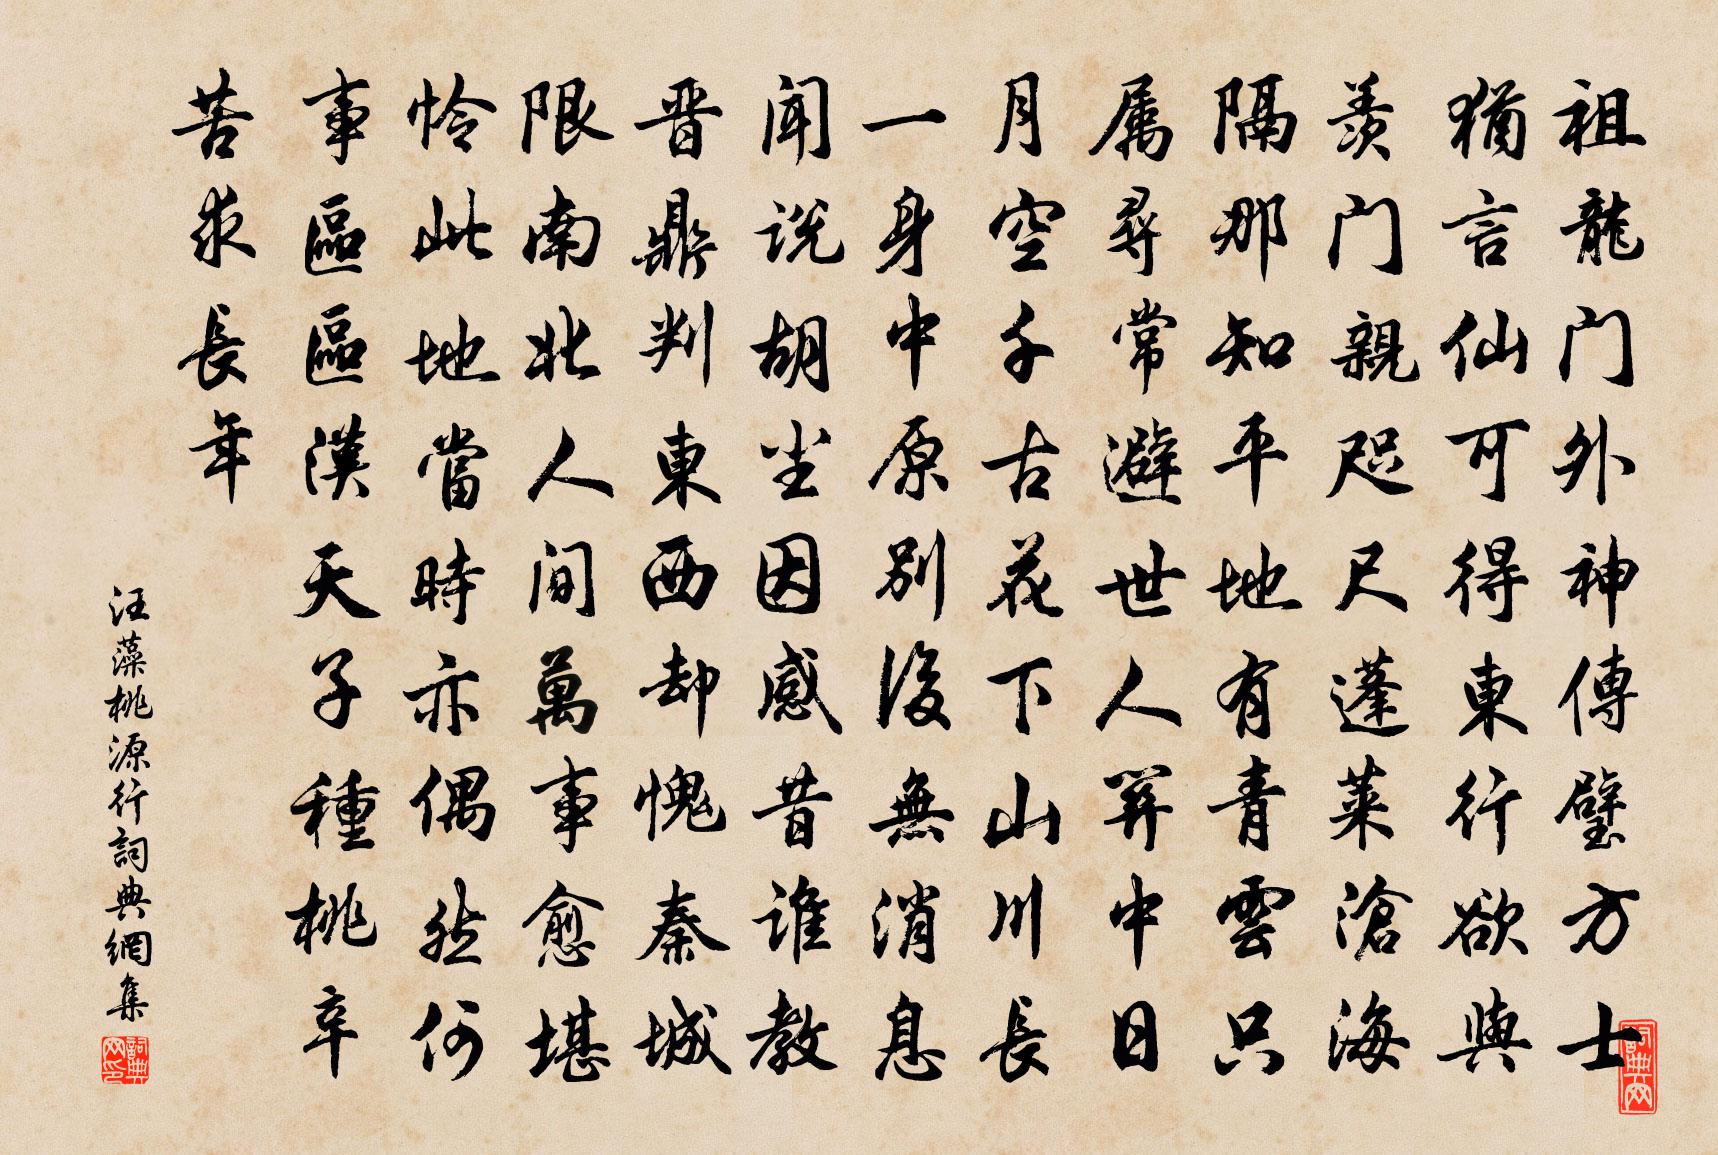 祖龍门外神傳璧方士
猶言仙可得東行欲與
羡门親咫尺蓬莱滄海
隔那知平地有青雲只
属尋常避世人关中日
月空千古花下山川長
一身中原别後無消息
闻说胡尘因感昔谁教
晋鼎判東西却愧秦城
限南北人间萬事愈堪
怜此地當時亦偶然何
事區區漢天子種桃辛
苦求長年
汪藻桃源行詞典網集
詞典网
詞典网印